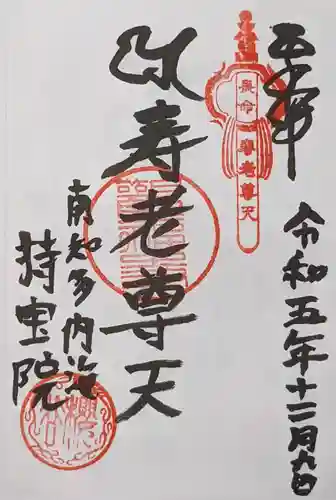 奉拝
長命 寿老尊天
令和五年十二月九日
寿老尊天
南知多内海
持宝院